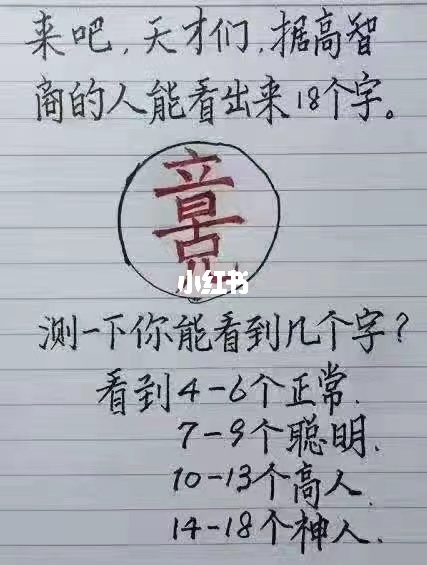 来吧,天才们,据高智
商的人能看出来18个字。
小红书
测一下你能看到几个字?
看到4-6个正常.
7-9个聪明.
10-13个高人.
14-18个神人.